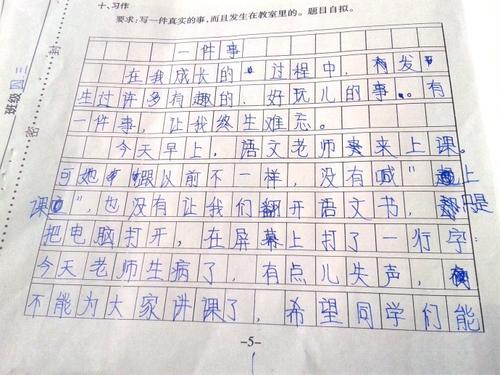 十、习作
要求:写一件真实的事,而且发生在教室里的。题目自拟。
一件事
在我成长的过程中,有发
生过许多有趣的、好玩儿的事。有
一件事,让我终生难忘。
今天早上,语文老师来上课。
可她跟以前不一样,没有喊"上
课",也没有让我们翻开语文书,只是
把电脑打开,在屏幕上打了一行字:
今天老师生病了,有点儿失声,
不能为大家讲课了,希望同学们能
-5-
班级 四三
封
密